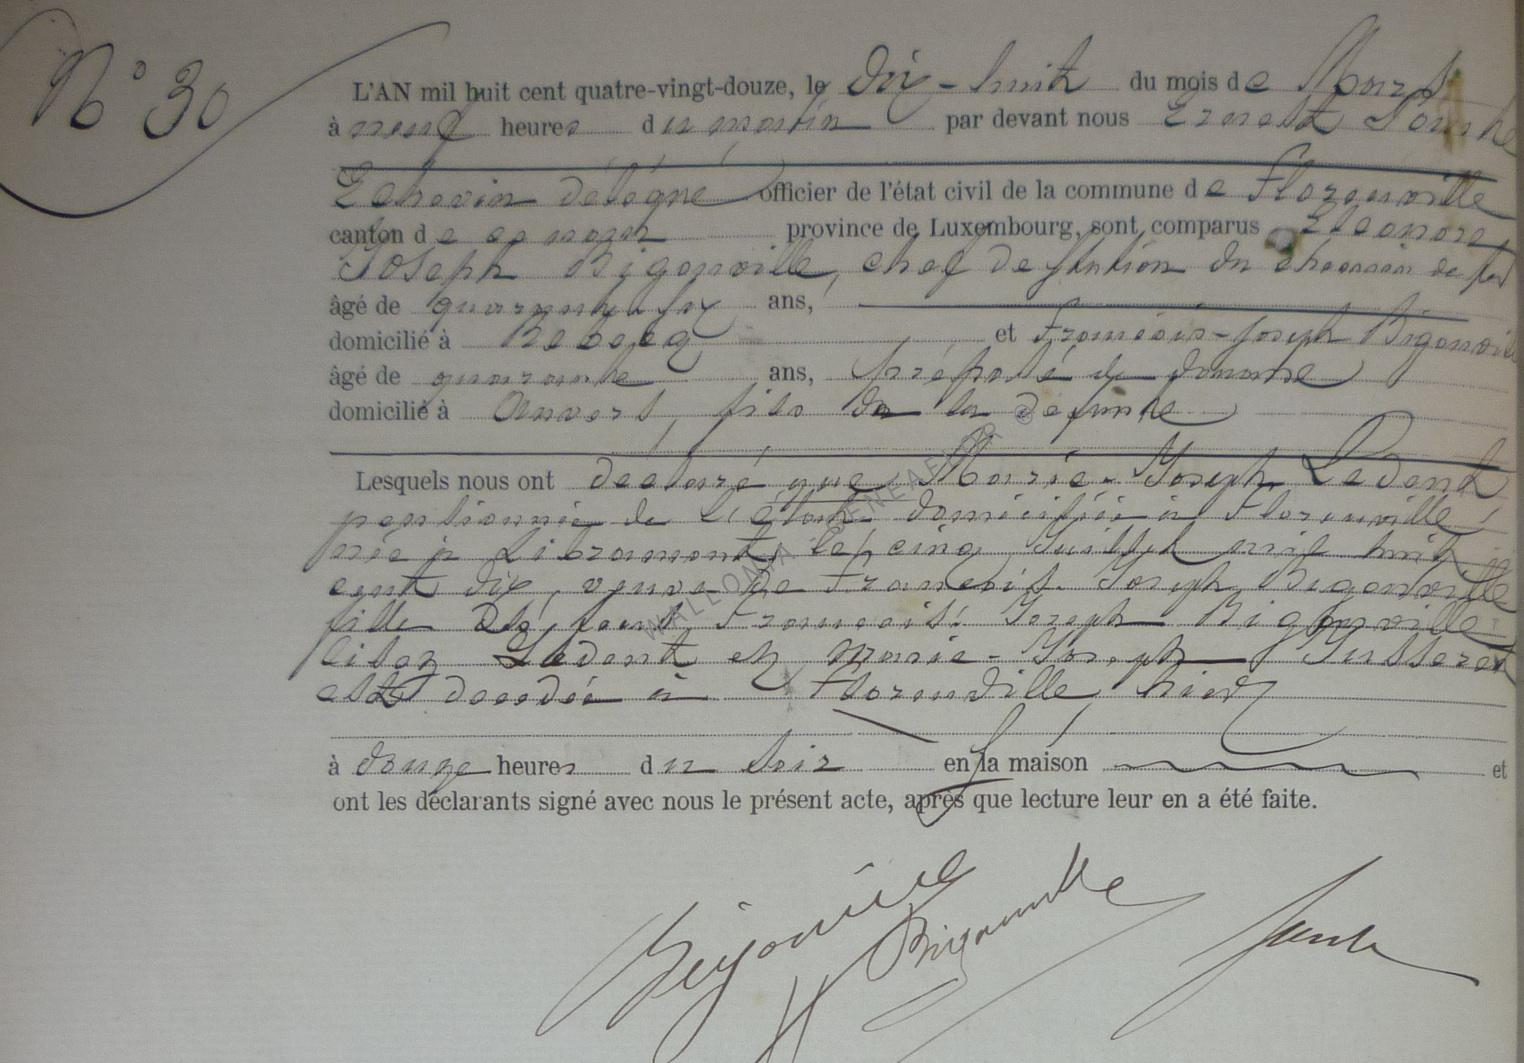 N° 30
L'AN mil huit cent quatre-vingt-douze, le Dix-huit du mois de Mars
à neuf heures du matin par devant nous Ernest
Echevin délégué officier de l'état civil de la commune de Florenville
canton de province de Luxembourg, sont comparus Eléonore
Joseph Bigonville, chef de station du chemin de fer
âgé de quarante six ans,
domicilié à Rebecq et François-Joseph Bigonville
âgé de quarante ans, préposé de douane
domicilié à Anvers, fils de la défunte
Lesquels nous ont déclaré que Marie-Joseph Ledent
pensionnée de l'état domiciliée à Florenville,
née à Libramont, le cinq Juillet mil huit
cent dix, veuve de François Joseph Bigonville
fille des François Joseph Bigonville
Ledent et Marie-Joseph
est décédée à Florenville hier
à douze heures du soir en la maison et
ont les déclarants signé avec nous le présent acte, après que lecture leur en a été faite.
Bigonville
Bigonville
WALLONIA GENEAFER ©